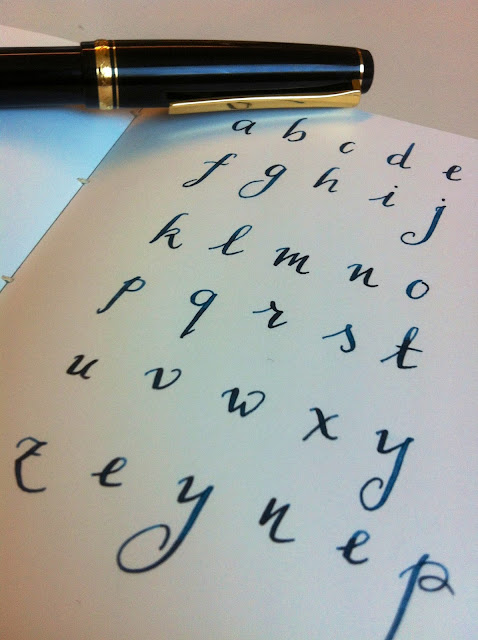 a b c d e
f g h i j
k l m n o
p q r s t
u v w x y
z e y n e p